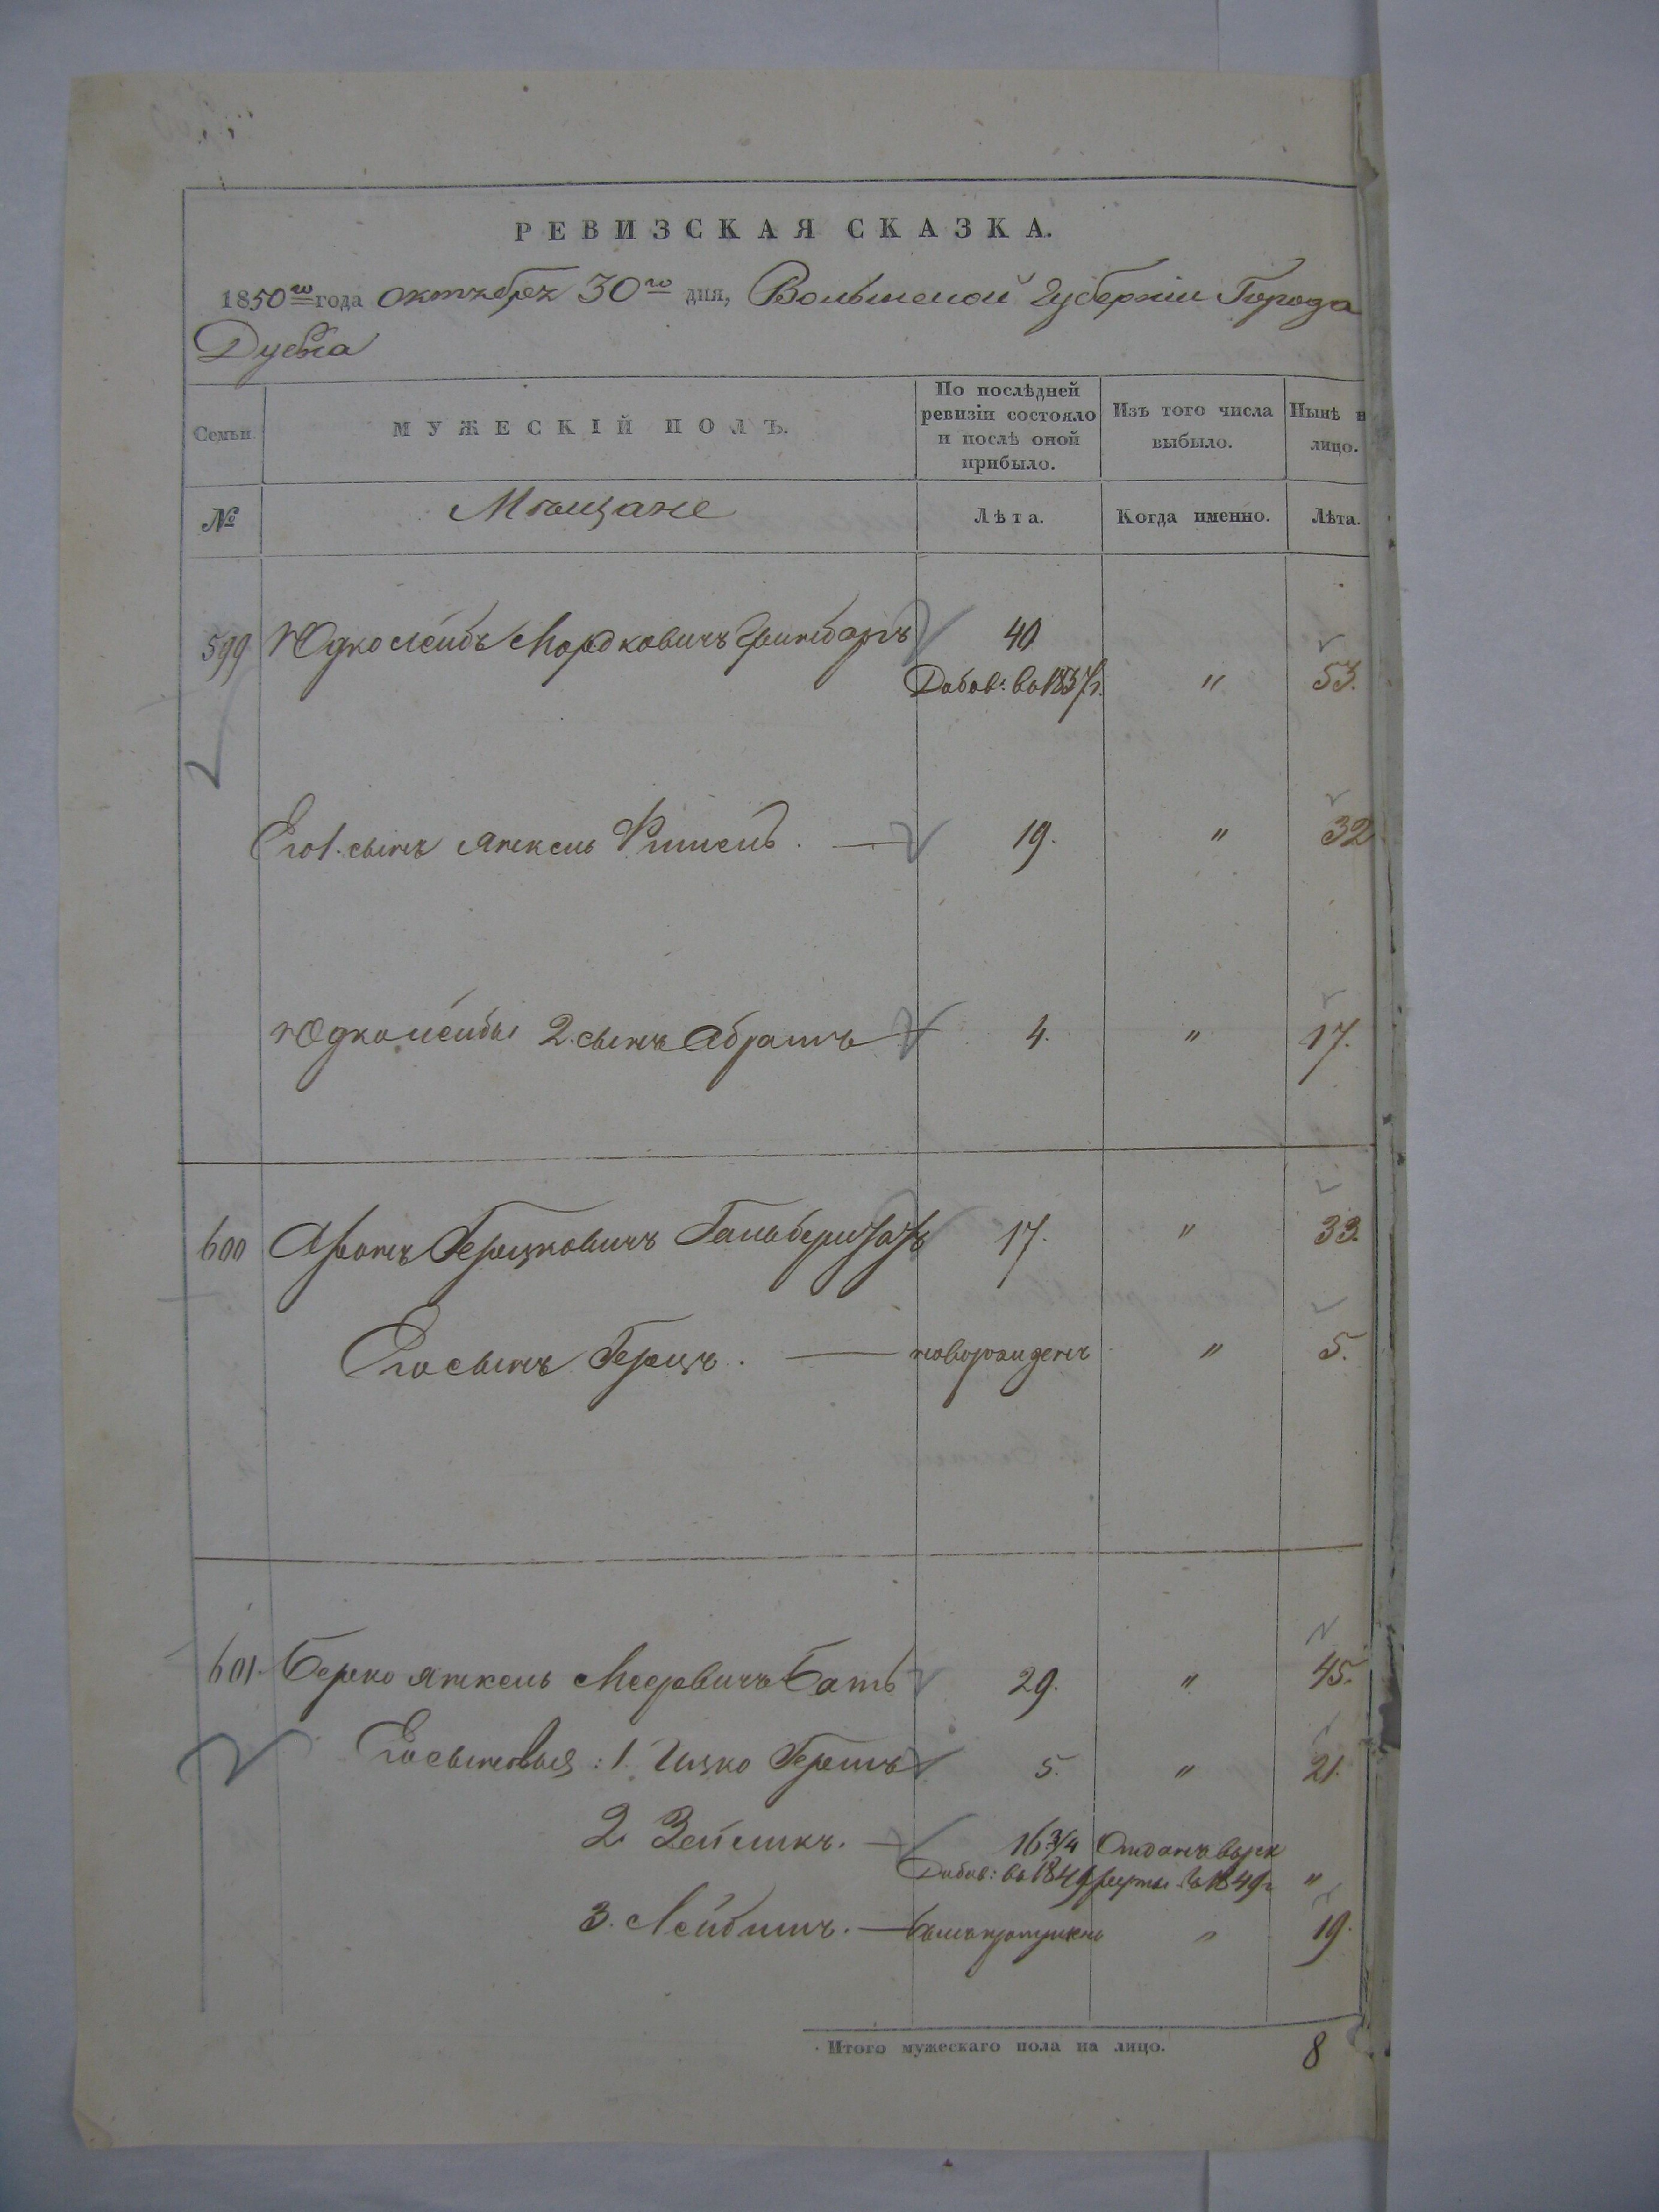 РЕВИЗСКАЯ СКАЗКА.
1850го года октября 30го дня, Волынской Губерніи Города
Дубна
Семьи. МУЖЕСКІЙ ПОЛЪ. По послѣдней ревизіи состояло и послѣ оной прибыло. Изъ того числа выбыло. Нынѣ н лицо.
№ Мѣщане Лѣта. Когда именно. Лѣта.
599 Юдко Лейбъ Мордковичъ Гринбаргъ 40 Добав: въ 1837г. " 53.
Его 1. сынъ Янкель Фишель. — 19. " 32
Юдколейбы 2. сынъ Абрамъ 4. " 17.
600 Аронъ Герцковичъ 17. " 33.
Его сынъ Герцъ. — новорожденъ " 5.
601. Берко Янкель Мееровичъ Батъ 29. " 45.
Его сыновья: 1. Ицко Гершъ 5. " 21.
2. Зейликъ. — 16 3/4 Отданъ в рек
Добав: въ 1849 руты въ 1849г "
3. Лейбишъ. — былъ пропущенъ " 19.
Итого мужескаго пола на лицо. 8